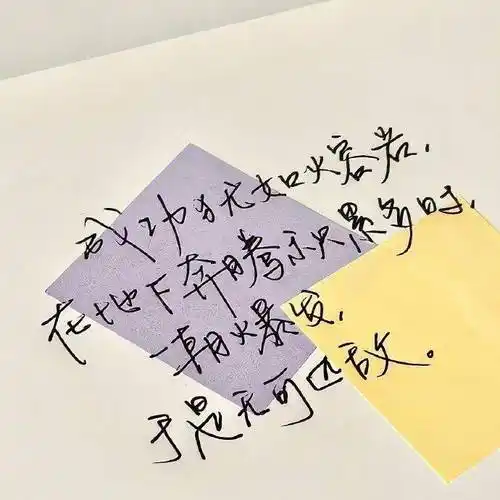 成功犹如火容岩,
在地下奔腾积累多时,
一朝火暴发,
于是无可匹敌。